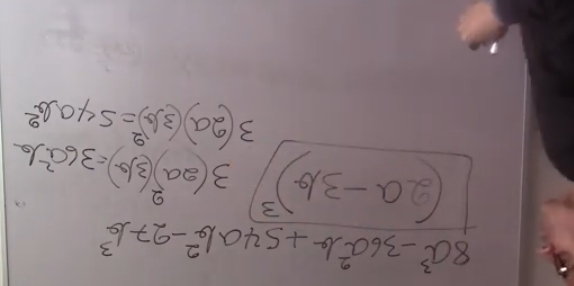 8a³-36a²b+54ab²-27b³
(2a-3b)³
3(2a)²(3b)=36a²b
3(2a)(3b)²=54ab²